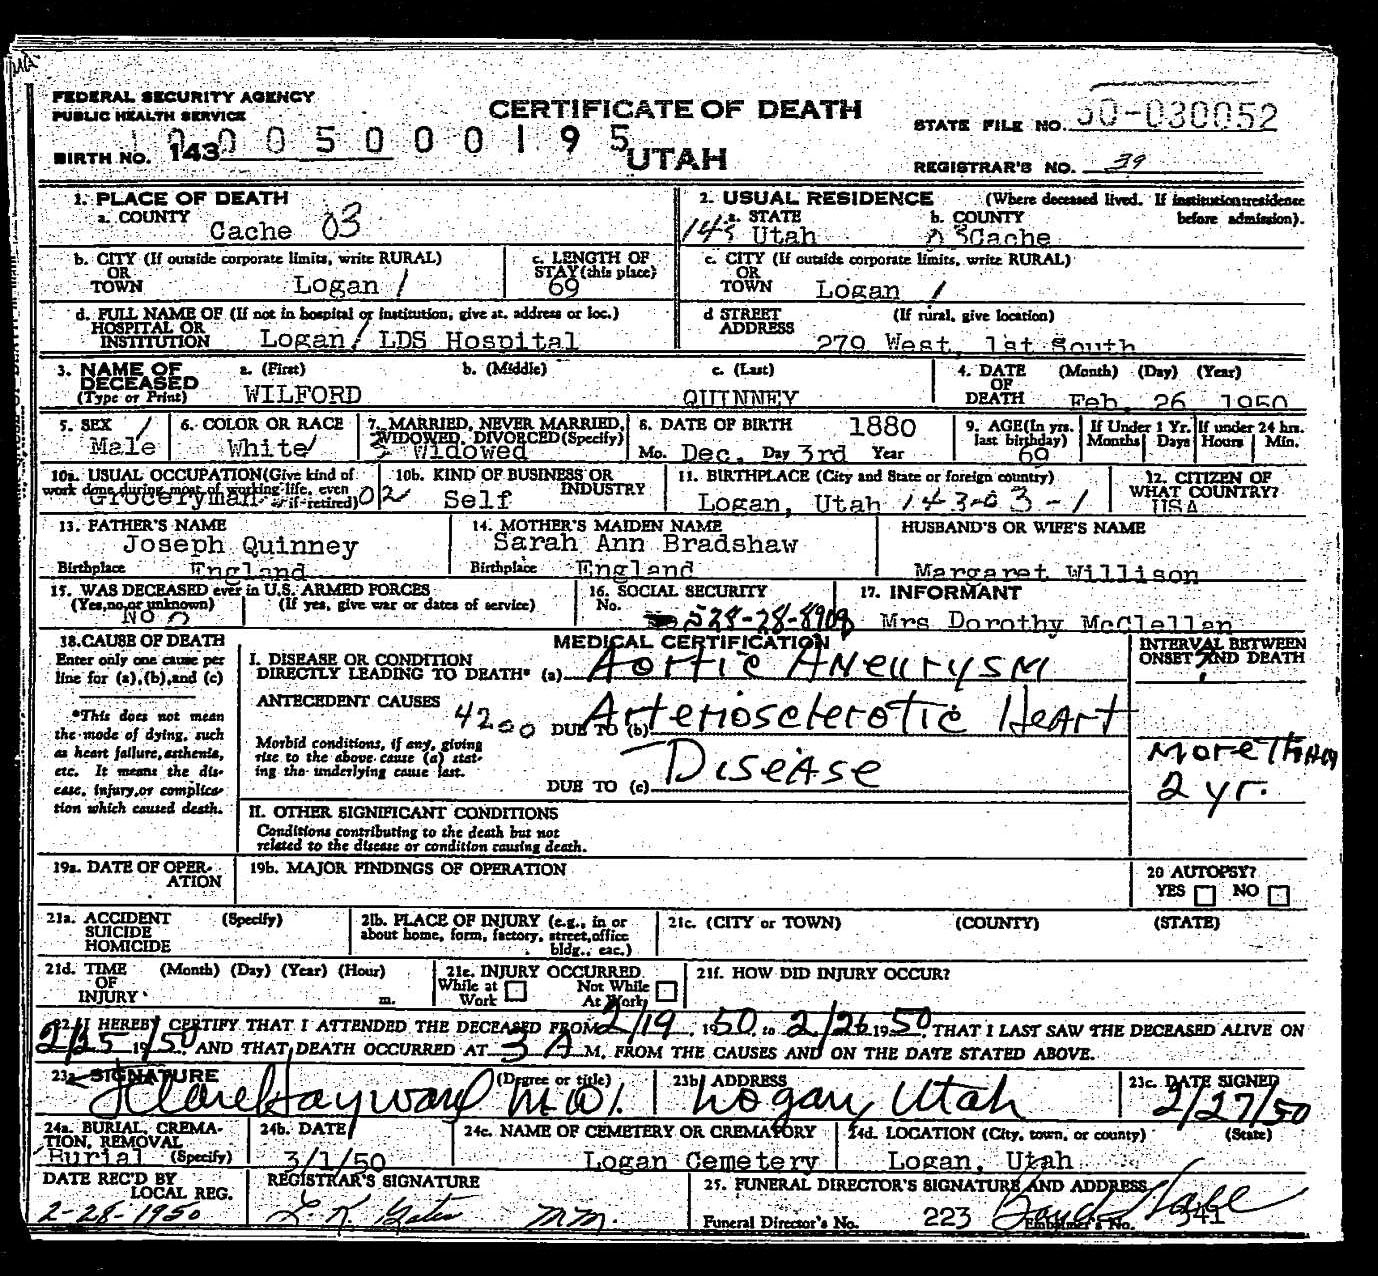 FEDERAL SECURITY AGENCY
PUBLIC HEALTH SERVICE
CERTIFICATE OF DEATH
STATE FILE NO. 50-030052
BIRTH NO. 143 0 0 5 0 0 0 1 9 5
UTAH
REGISTRAR'S NO. 39
1. PLACE OF DEATH
a. COUNTY Cache 03
2. USUAL RESIDENCE (Where deceased lived. If institution: residence before admission).
a. STATE Utah b. COUNTY Cache
b. CITY (If outside corporate limits, write RURAL) OR TOWN Logan /
c. LENGTH OF STAY (this place) 69
c. CITY (If outside corporate limits, write RURAL) OR TOWN Logan /
d. FULL NAME OF (If not in hospital or institution, give st. address or loc.) HOSPITAL OR INSTITUTION Logan / LDS Hospital
d STREET ADDRESS (If rural, give location) 279 West, 1st South
3. NAME OF DECEASED (Type or Print) a. (First) WILFORD b. (Middle) c. (Last) QUINNEY
4. DATE OF DEATH (Month) (Day) (Year) Feb. 26 1950
5. SEX / Male
6. COLOR OR RACE White /
7. MARRIED, NEVER MARRIED, WIDOWED, DIVORCED (Specify) Widowed
8. DATE OF BIRTH 1880 Mo. Dec. Day 3rd Year
9. AGE (In yrs. last birthday) 69
If Under 1 Yr. Months Days
If under 24 hrs. Hours Min.
10a. USUAL OCCUPATION (Give kind of work done during most of working life, even if retired) Groceryman 02
10b. KIND OF BUSINESS OR INDUSTRY Self
11. BIRTHPLACE (City and State or foreign country) Logan, Utah 143-03-1
12. CITIZEN OF WHAT COUNTRY? USA
13. FATHER'S NAME Joseph Quinney
Birthplace England
14. MOTHER'S MAIDEN NAME Sarah Ann Bradshaw
Birthplace England
HUSBAND'S OR WIFE'S NAME
Margaret Willison
15. WAS DECEASED ever in U.S. ARMED FORCES
(Yes, no, or unknown) No 0 (If yes, give war or dates of service)
16. SOCIAL SECURITY No. 528-28-8909
17. INFORMANT
Mrs Dorothy McClellan
18. CAUSE OF DEATH
Enter only one cause per line for (a), (b), and (c)
*This does not mean the mode of dying, such as heart failure, asthenia, etc. It means the disease, injury, or complication which caused death.
MEDICAL CERTIFICATION
INTERVAL BETWEEN ONSET AND DEATH
I. DISEASE OR CONDITION DIRECTLY LEADING TO DEATH* (a) Aortic Aneurysm ?
ANTECEDENT CAUSES 4200
Morbid conditions, if any, giving rise to the above cause (a) stating the underlying cause last.
DUE TO (b) Arteriosclerotic Heart
Disease
DUE TO (c)
More Than
2 yr.
II. OTHER SIGNIFICANT CONDITIONS
Conditions contributing to the death but not related to the disease or condition causing death.
19a. DATE OF OPERATION
19b. MAJOR FINDINGS OF OPERATION
20 AUTOPSY?
YES NO
21a. ACCIDENT SUICIDE HOMICIDE (Specify)
21b. PLACE OF INJURY (e.g., in or about home, form, factory, street, office bldg., eac.)
21c. (CITY or TOWN) (COUNTY) (STATE)
21d. TIME OF INJURY (Month) (Day) (Year) (Hour) m.
21e. INJURY OCCURRED While at Work Not While At Work
21f. HOW DID INJURY OCCUR?
22. I HEREBY CERTIFY THAT I ATTENDED THE DECEASED FROM 2/19, 1950, to 2/26 1950, THAT I LAST SAW THE DECEASED ALIVE ON
2/25 1950, AND THAT DEATH OCCURRED AT 3 A M, FROM THE CAUSES AND ON THE DATE STATED ABOVE.
23a SIGNATURE (Degree or title) Hayward M.D.
23b ADDRESS Logan, Utah
23c. DATE SIGNED 2/27/50
24a. BURIAL, CREMATION, REMOVAL (Specify) Burial
24b. DATE 3/1/50
24c. NAME OF CEMETERY OR CREMATORY Logan Cemetery
24d. LOCATION (City, town, or county) (State) Logan, Utah
DATE REC'D BY LOCAL REG. 2-28-1950
REGISTRAR'S SIGNATURE
25. FUNERAL DIRECTOR'S SIGNATURE AND ADDRESS
Funeral Director's No. 223 Embalmer's No. 341